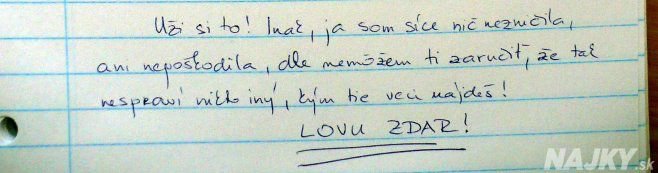 Uži si to! Inač, ja som síce nič nezničila,
ani nepoškodila, ale nemôžem ti zaručiť, že tak
nespraví nikto iný, kým tie veci nájdeš!
LOVU ZDAR!
NAJKY.sk